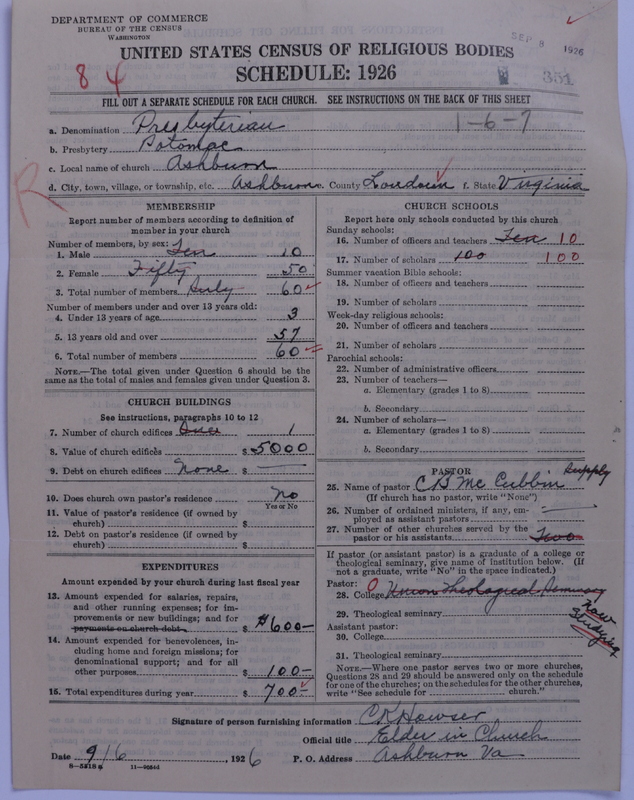 DEPARTMENT OF COMMERCE
BUREAU OF THE CENSUS
WASHINGTON
SEP 8 1926
UNITED STATES CENSUS OF RELIGIOUS BODIES
84
SCHEDULE: 1926
351
FILL OUT A SEPARATE SCHEDULE FOR EACH CHURCH. SEE INSTRUCTIONS ON THE BACK OF THIS SHEET
a. Denomination Presbyterian 1-6-7
b. Presbytery Potomac
c. Local name of church Ashburn
d. City, town, village, or township, etc. Ashburn e. County Loudoun f. State Virginia
R
MEMBERSHIP
Report number of members according to definition of
member in your church
Number of members, by sex:
1. Male Ten 10
2. Female Fifty 50
3. Total number of members Sixty 60
Number of members under and over 13 years old:
4. Under 13 years of age 3
5. 13 years old and over 57
6. Total number of members 60
NOTE.—The total given under Question 6 should be the
same as the total of males and females given under Question 3.
CHURCH BUILDINGS
See instructions, paragraphs 10 to 12
7. Number of church edifices One 1
8. Value of church edifices $ 5000
9. Debt on church edifices None $ —
10. Does church own pastor's residence No
Yes or No
11. Value of pastor's residence (if owned by
church) $
12. Debt on pastor's residence (if owned by
church) $
EXPENDITURES
Amount expended by your church during last fiscal year
13. Amount expended for salaries, repairs,
and other running expenses; for im-
provements or new buildings; and for
payments on church debt $ $600—
14. Amount expended for benevolences, in-
cluding home and foreign missions; for
denominational support; and for all
other purposes $ 100—
15. Total expenditures during year $ 700—
CHURCH SCHOOLS
Report here only schools conducted by this church
Sunday schools:
16. Number of officers and teachers Ten 10
17. Number of scholars 100 100
Summer vacation Bible schools:
18. Number of officers and teachers
19. Number of scholars
Week-day religious schools:
20. Number of officers and teachers
21. Number of scholars
Parochial schools:
22. Number of administrative officers
23. Number of teachers—
a. Elementary (grades 1 to 8)
b. Secondary
24. Number of scholars—
a. Elementary (grades 1 to 8)
b. Secondary
PASTOR
25. Name of pastor C B McCubbin Supply
(If church has no pastor, write "None")
26. Number of ordained ministers, if any, em-
ployed as assistant pastors —
27. Number of other churches served by the
pastor or his assistants Two
If pastor (or assistant pastor) is a graduate of a college or
theological seminary, give name of institution below. (If
not a graduate, write "No" in the space indicated.)
Pastor: 0
28. College Union Theological Seminary
now studying
29. Theological seminary
Assistant pastor:
30. College
31. Theological seminary
NOTE.—Where one pastor serves two or more churches,
Questions 28 and 29 should be answered only on the schedule
for one of the churches; on the schedules for the other churches,
write "See schedule for church."
Signature of person furnishing information C K Howser
Official title Elder in Church
Date 9/6, 1926 P. O. Address Ashburn Va